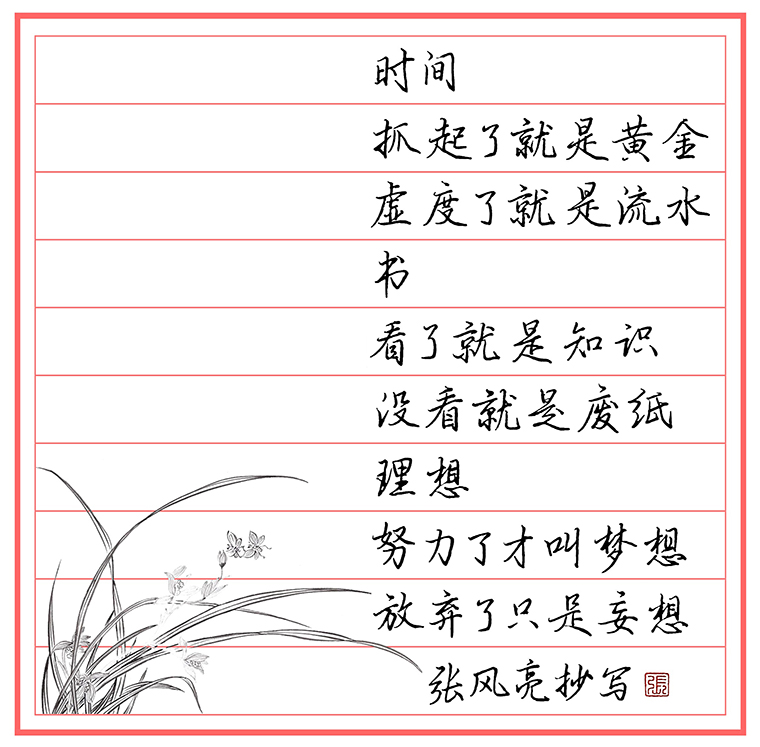 时间
抓起了就是黄金
虚度了就是流水
书
看了就是知识
没看就是废纸
理想
努力了才叫梦想
放弃了只是妄想
张风亮抄写 張